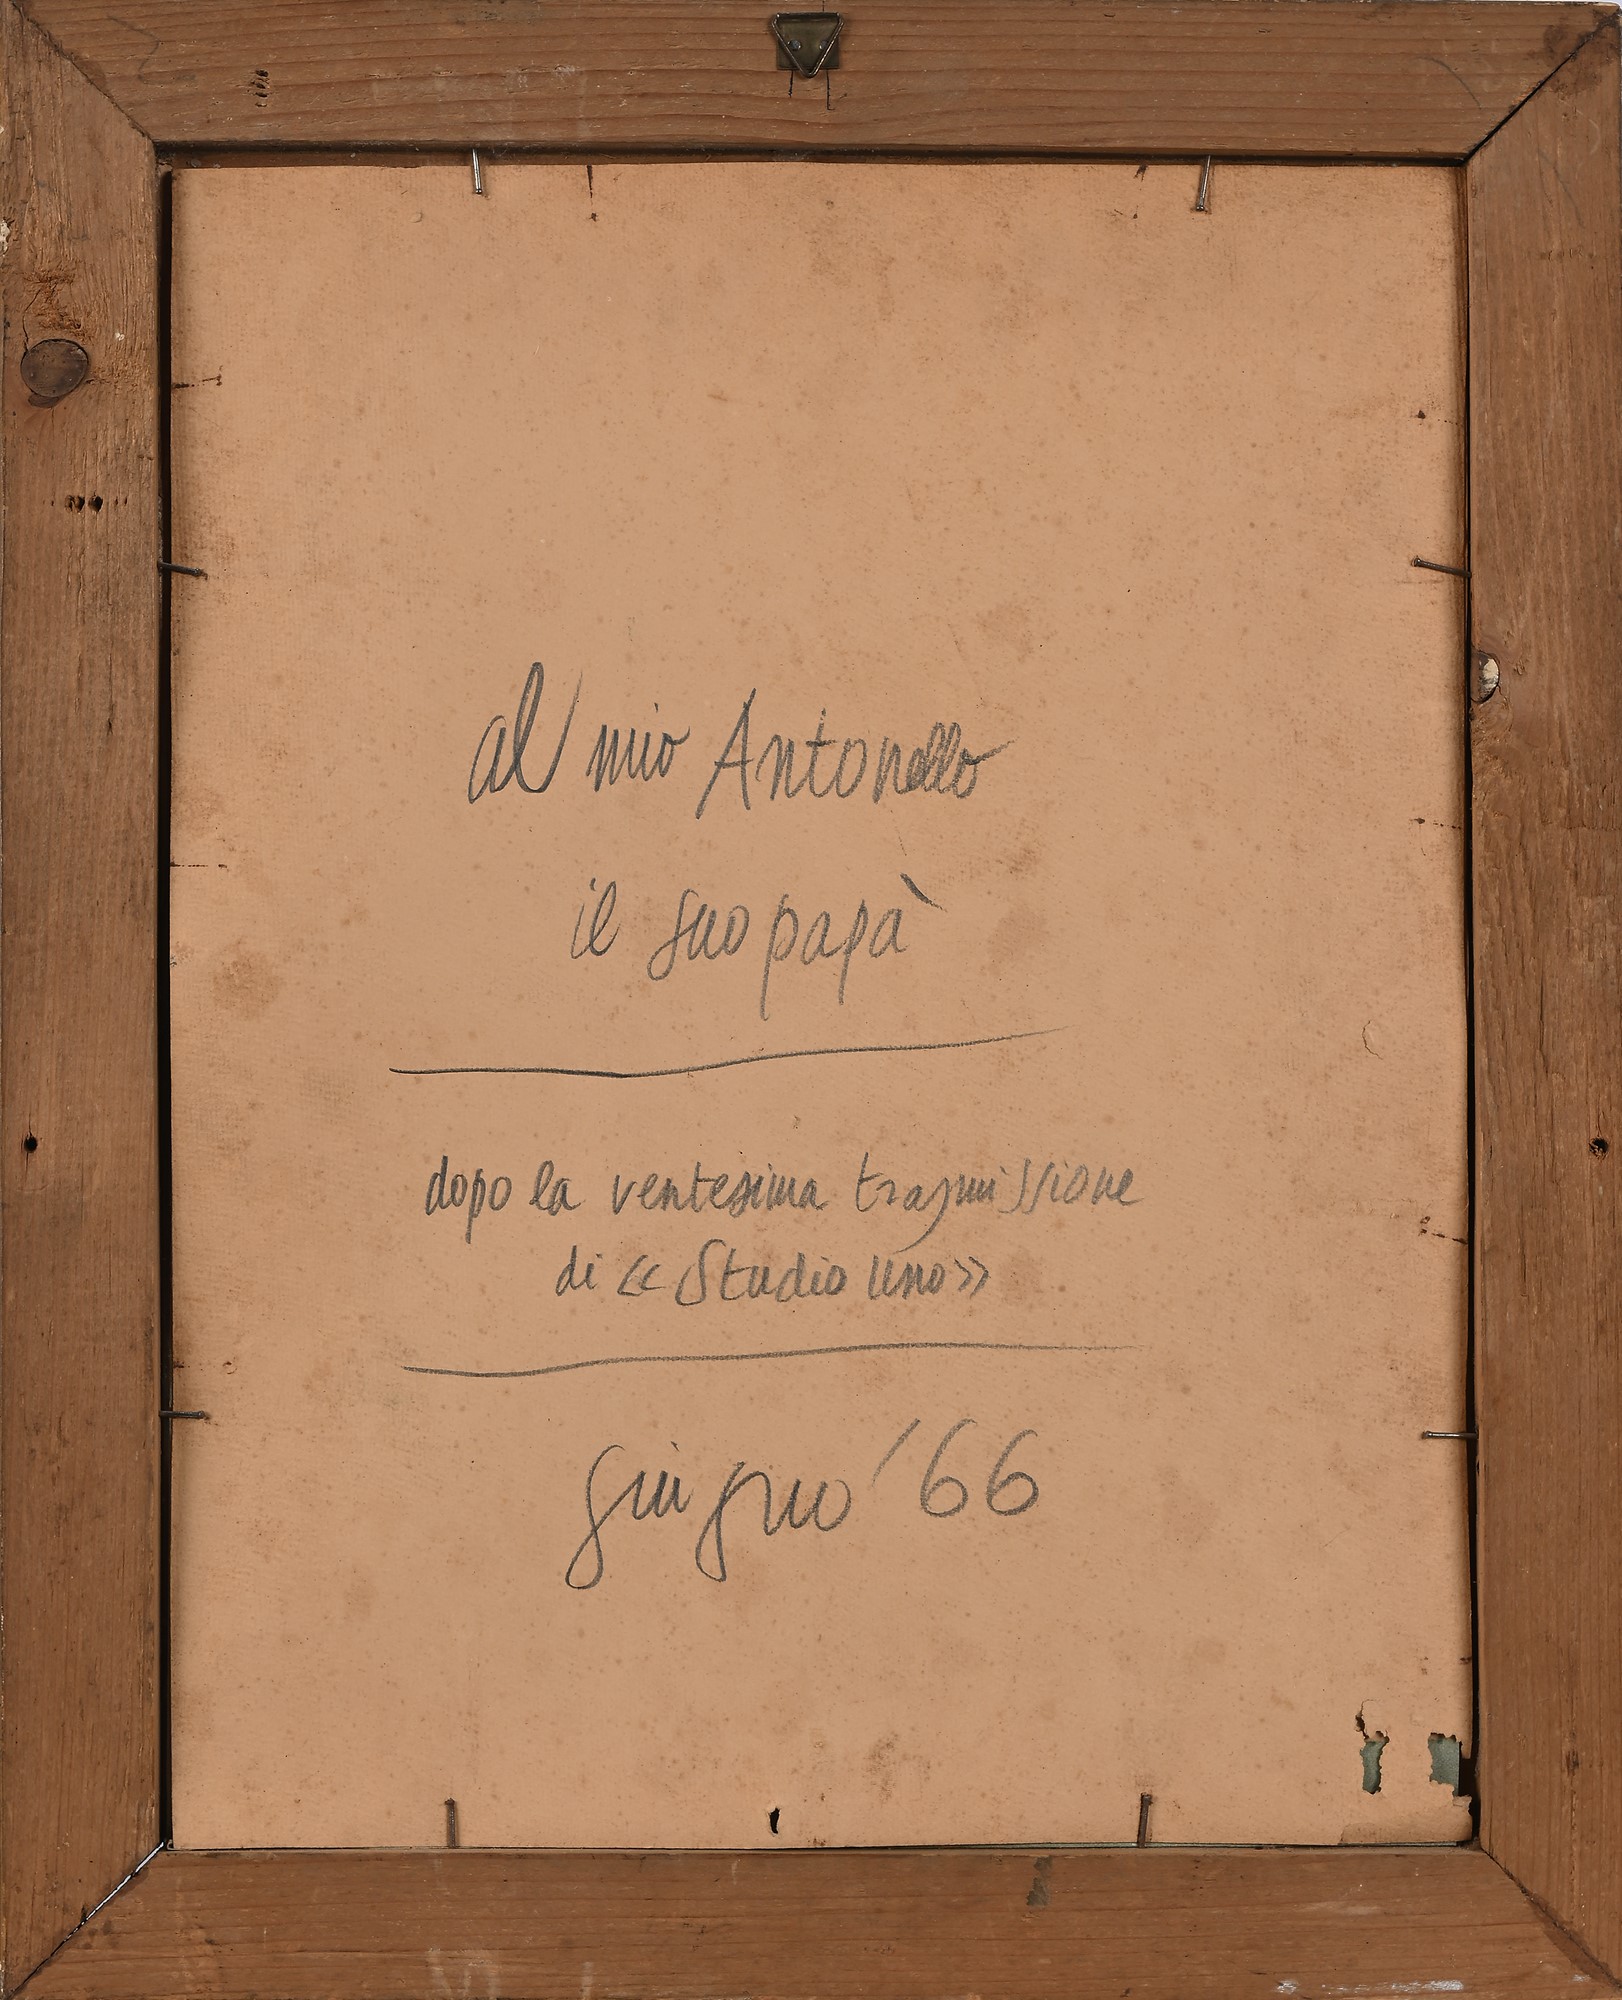 al mio Antonello
il suo papà
dopo la ventesima trasmissione
di «Studio Uno»
giugno '66